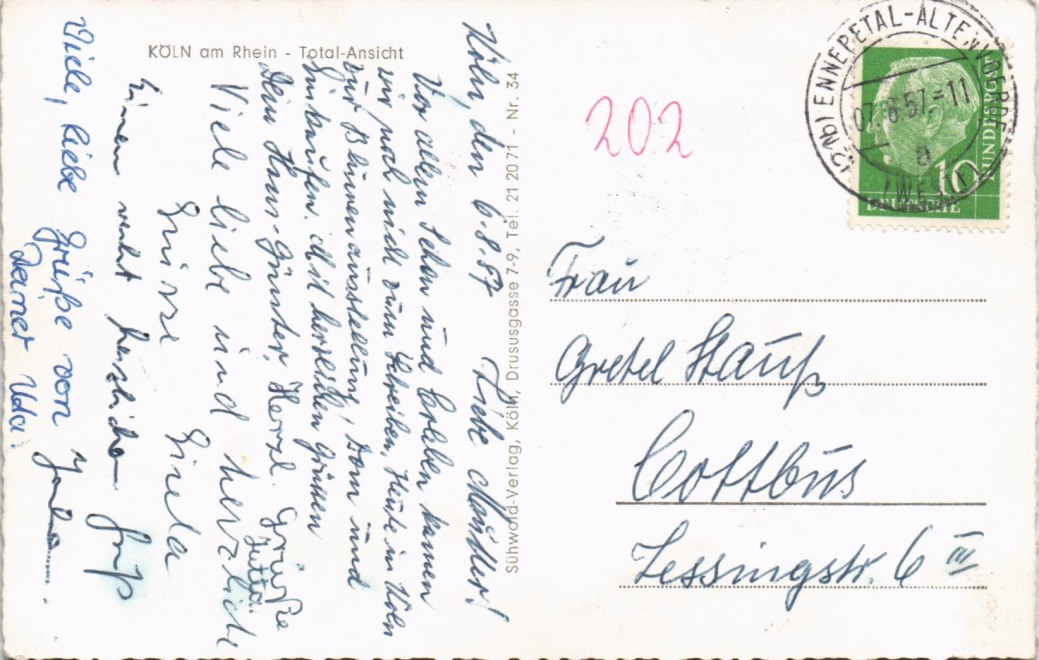 KÖLN am Rhein - Total-Ansicht
Köln, den 6.8.57 Liebe Mutter!
Vor allem Sehen und Erleben kamen
wir noch nicht zum Schreiben. Heute in Köln
zur Blumenausstellung, Dom und
Einkaufen. Mit herzlichen Grüssen
Dein Hans-Günter. Herzl. Grüße
Jutta.
Viele liebe und herzliche
Grüsse Linela
Einen recht herzlichen Gruß
Viele, liebe Grüße von
Deiner Uta.
Sühwold-Verlag, Köln, Drususgasse 7-9, Tel. 21 20 71 - Nr. 34
202
(21b) ENNEPETAL-ALTENVOERDE
07.8.57.-11
a
(WESTF)
10
DEUTSCHE
BUNDESPOST
Frau
Gretel Stauß
Cottbus
Lessingstr. 6 III